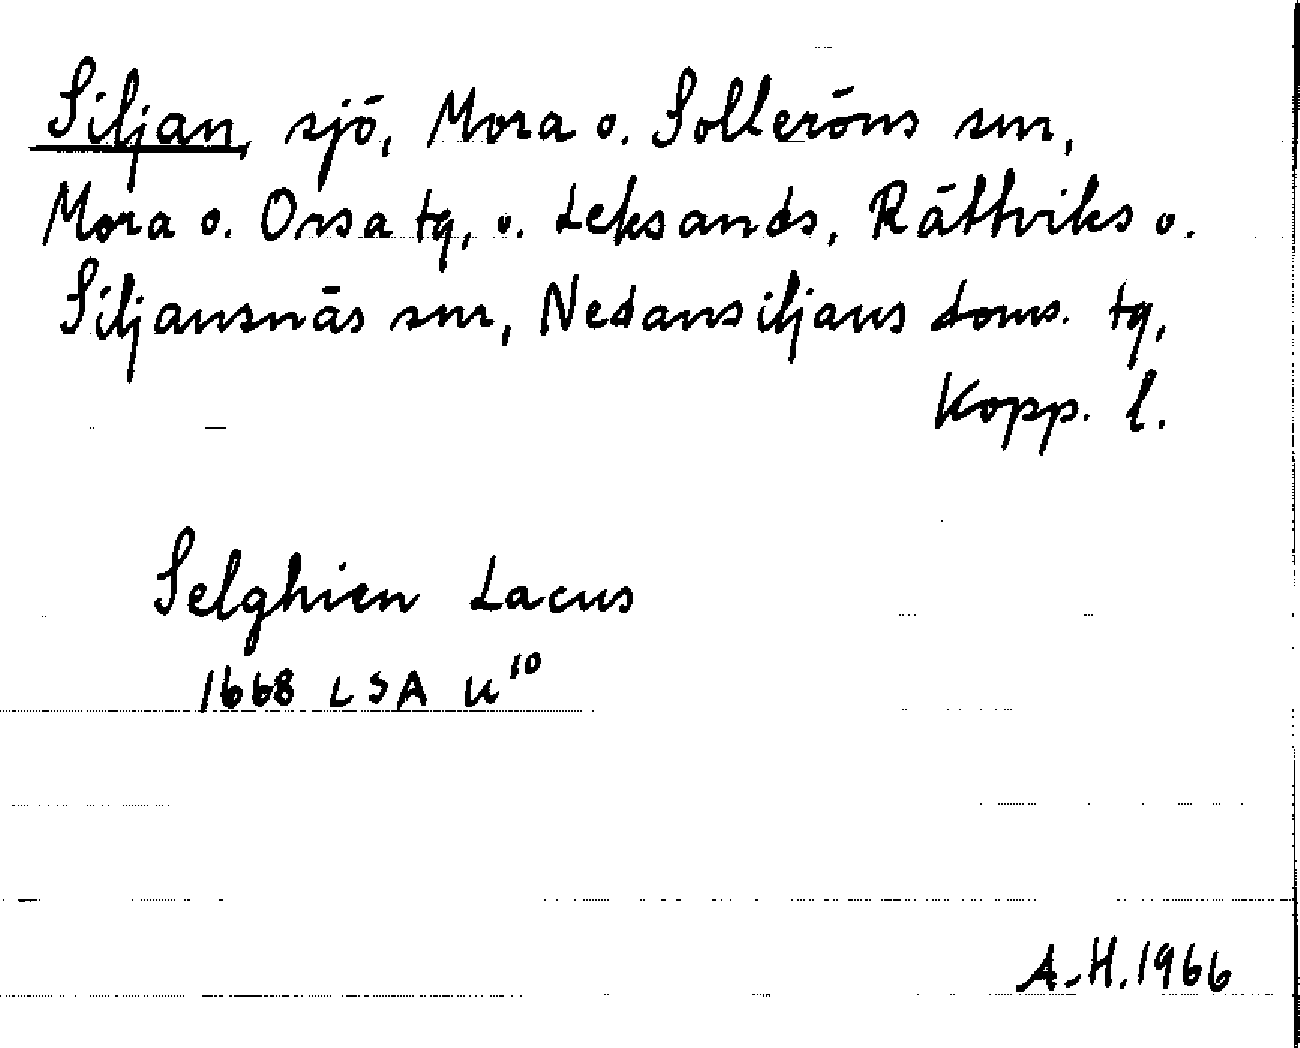 Siljan, sjö, Mora o. Solleröns snr,
Mora o. Orsa tg, o. Leksands, Rättviks o.
Siljansnäs snr, Nedansiljans doms. tg,
Kopp. l.
Selghien Lacus
1668 LSA U¹⁰
A-H. 1966